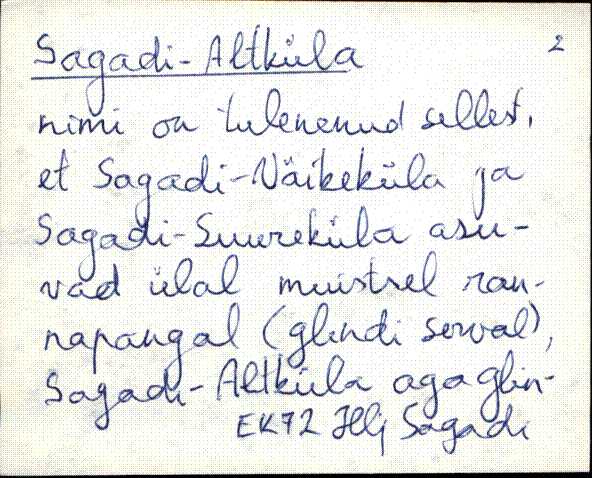 Sagadi-Altküla 2
nimi on tulenenud sellest,
et Sagadi-Väikeküla ja
Sagadi-Suureküla asu-
vad ülal muistsel ran-
napangal (glindi serval),
Sagadi-Altküla aga glin-
EK72 Hlj Sagadi